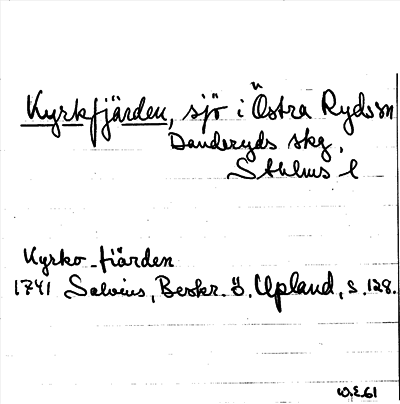 Kyrkfjärden, sjö i Östra Ryds sn
Danderyds skg.
Sthlms l
Kyrko-fiärden
1741 Salvius, Beskr. ö. Upland, s. 128.
W.E.61